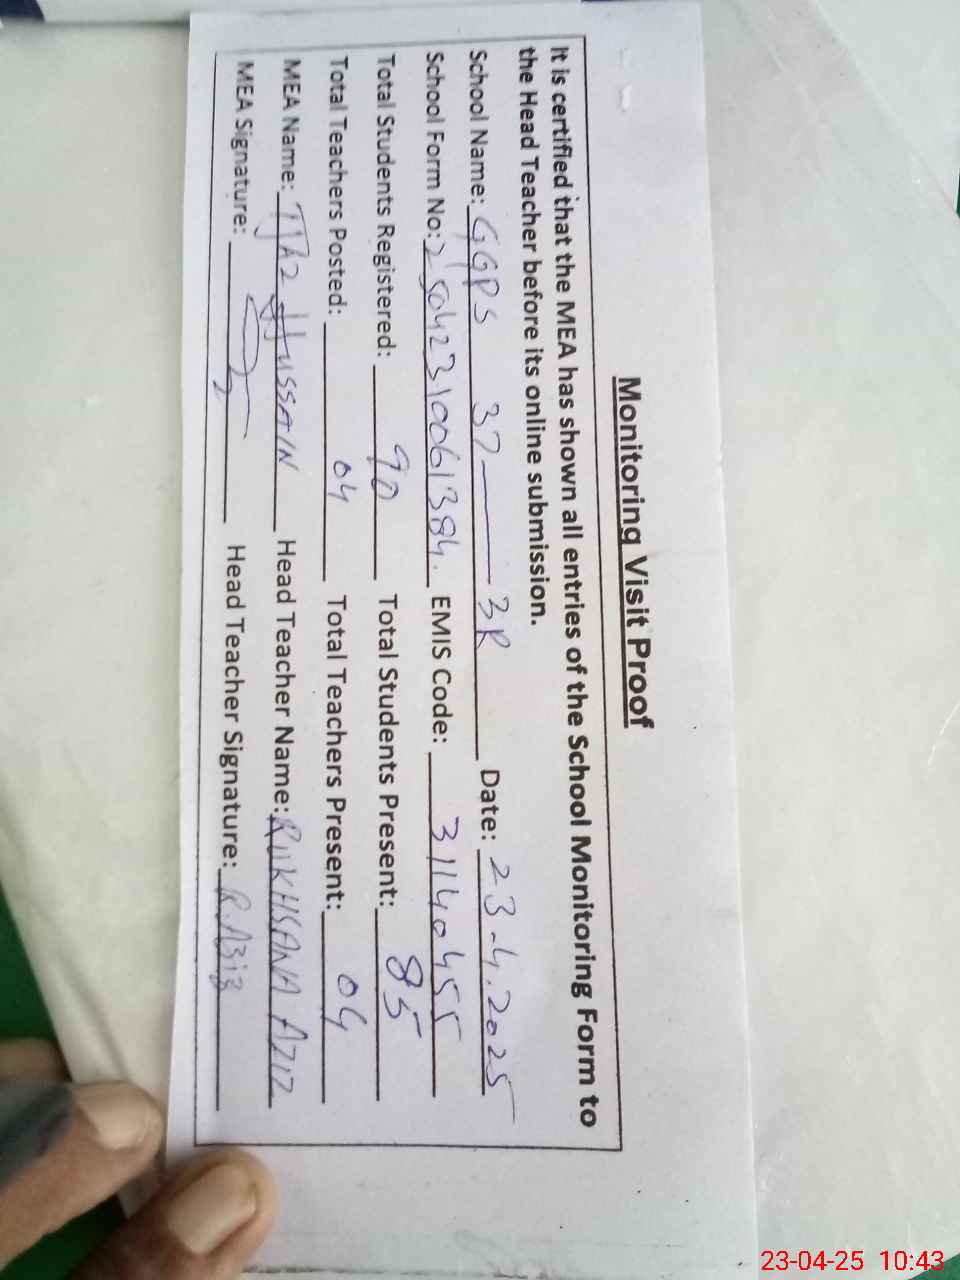 Monitoring Visit Proof
It is certified that the MEA has shown all entries of the School Monitoring Form to
the Head Teacher before its online submission.
School Name: GGPS 37 — 3R Date: 23-4.2025
School Form No: 25042310061384. EMIS Code: 31140455
Total Students Registered: 90 Total Students Present: 85
Total Teachers Posted: 04 Total Teachers Present: 04
MEA Name: IJAZ HUSSAIN Head Teacher Name: RUKHSANA AZIZ
MEA Signature: Head Teacher Signature: R.Aziz
23-04-25 10:43